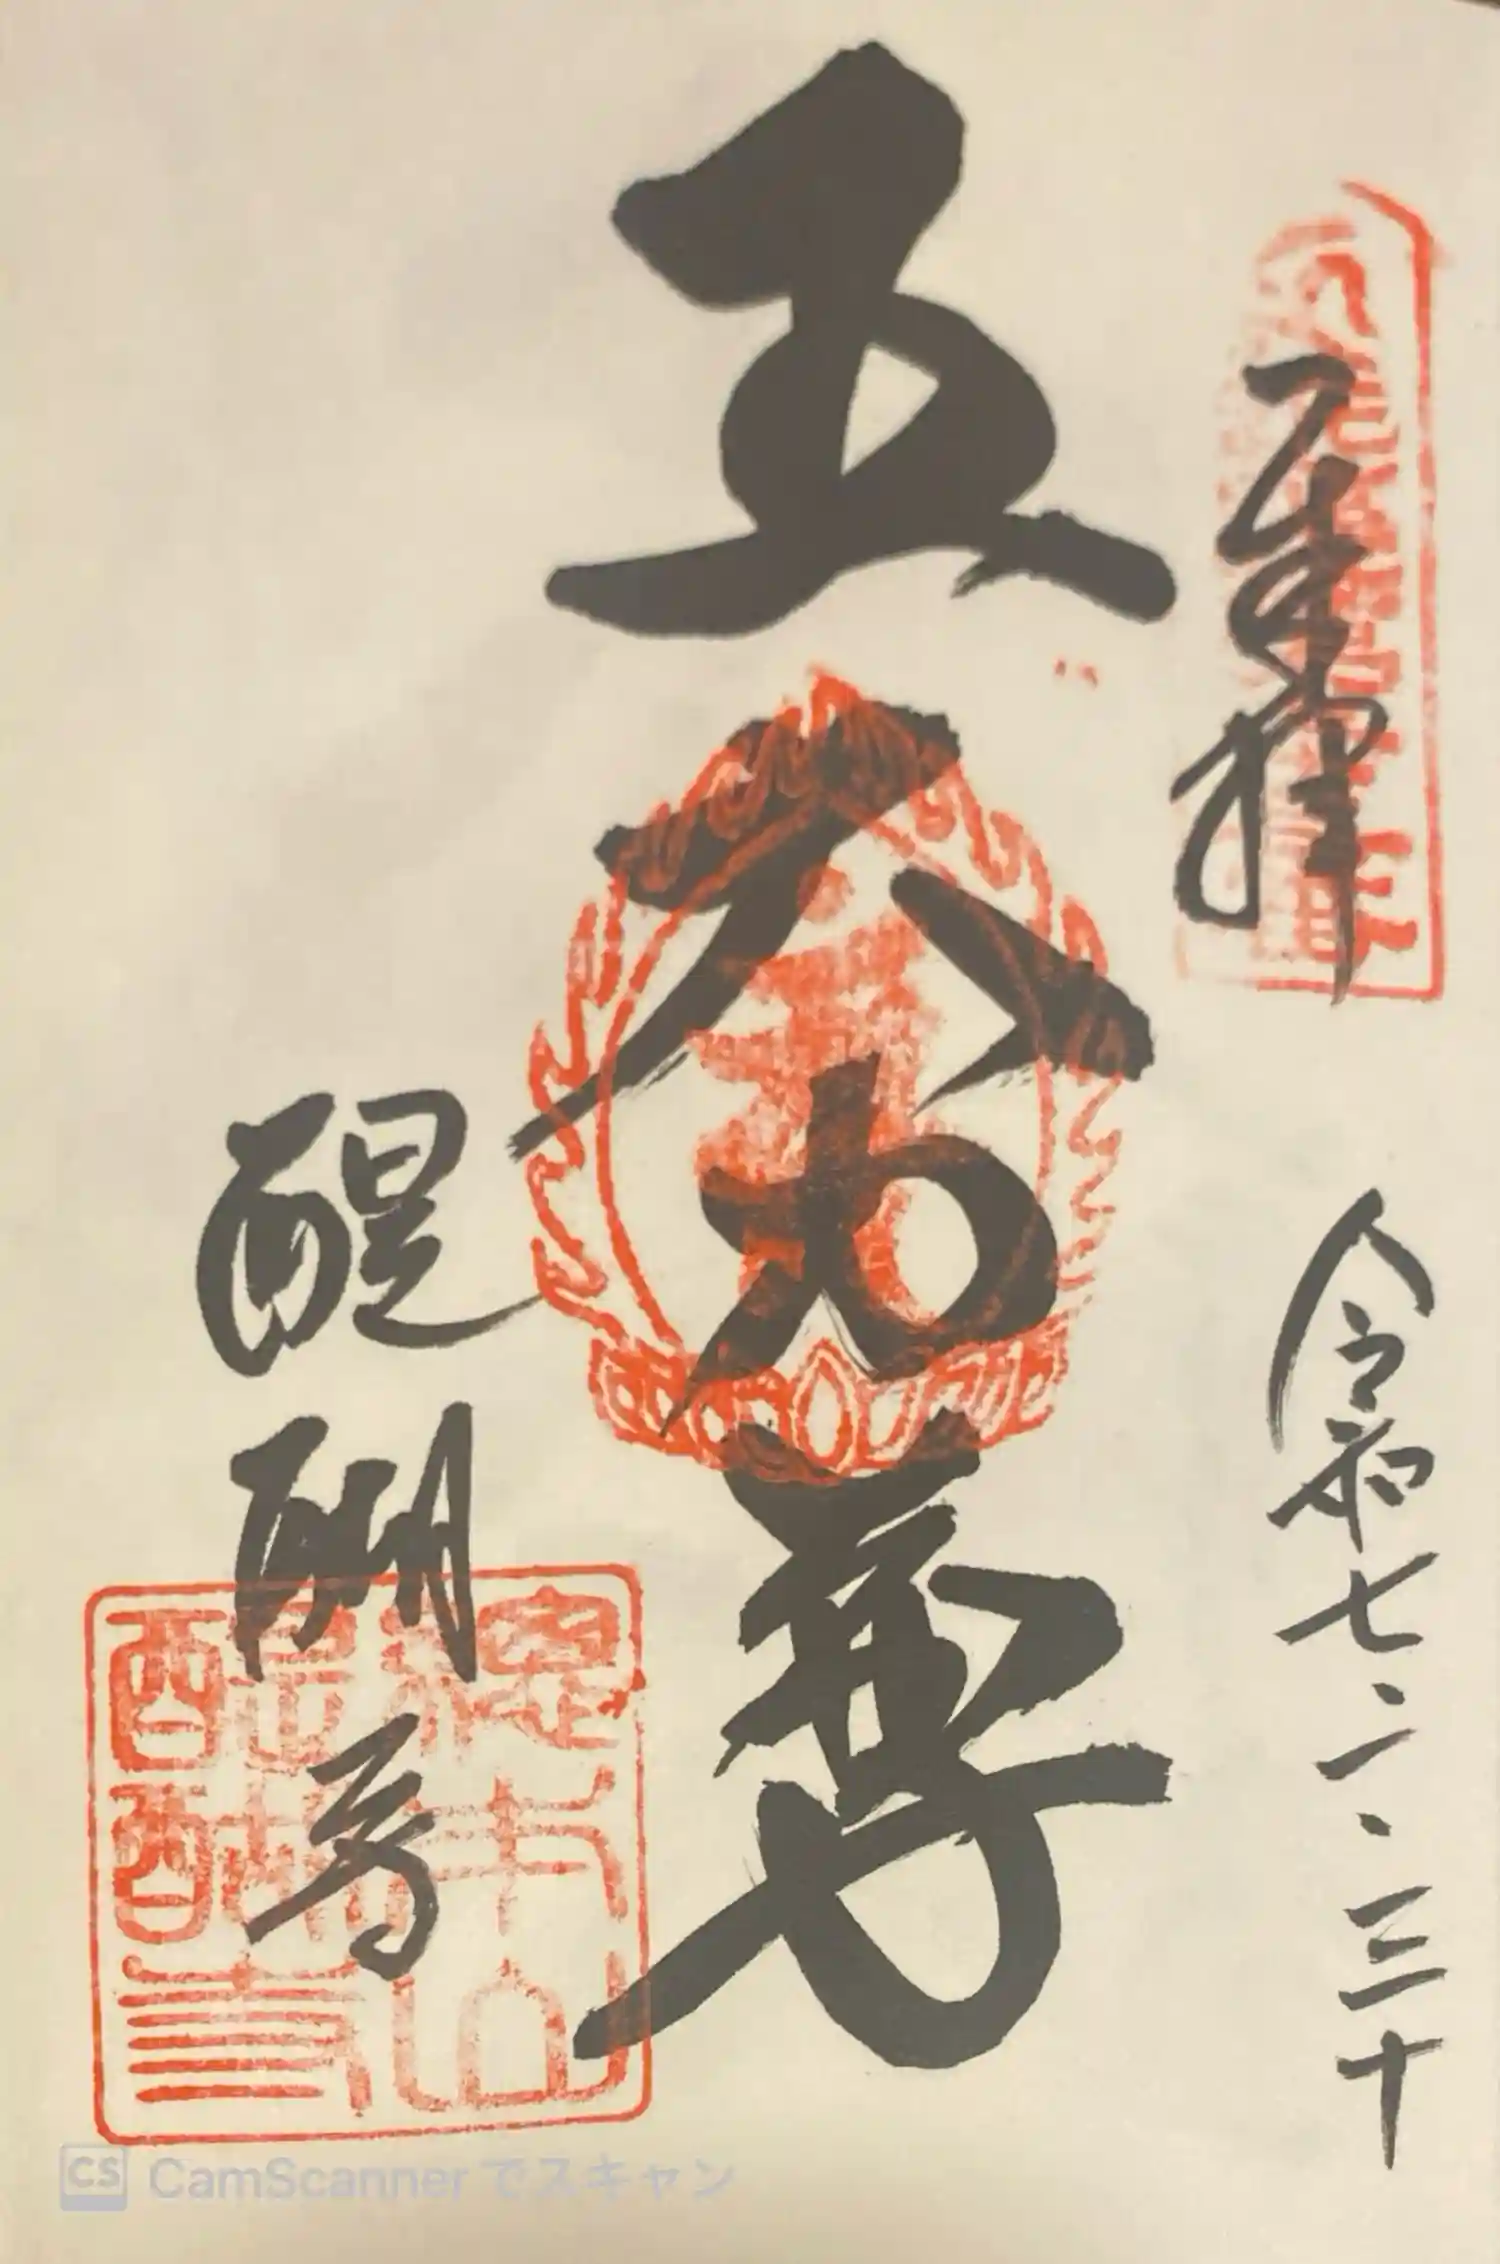 奉拝
令和七・二・三十
五大力尊
醍醐寺
總本山
醍醐寺
CS CamScanner でスキャン